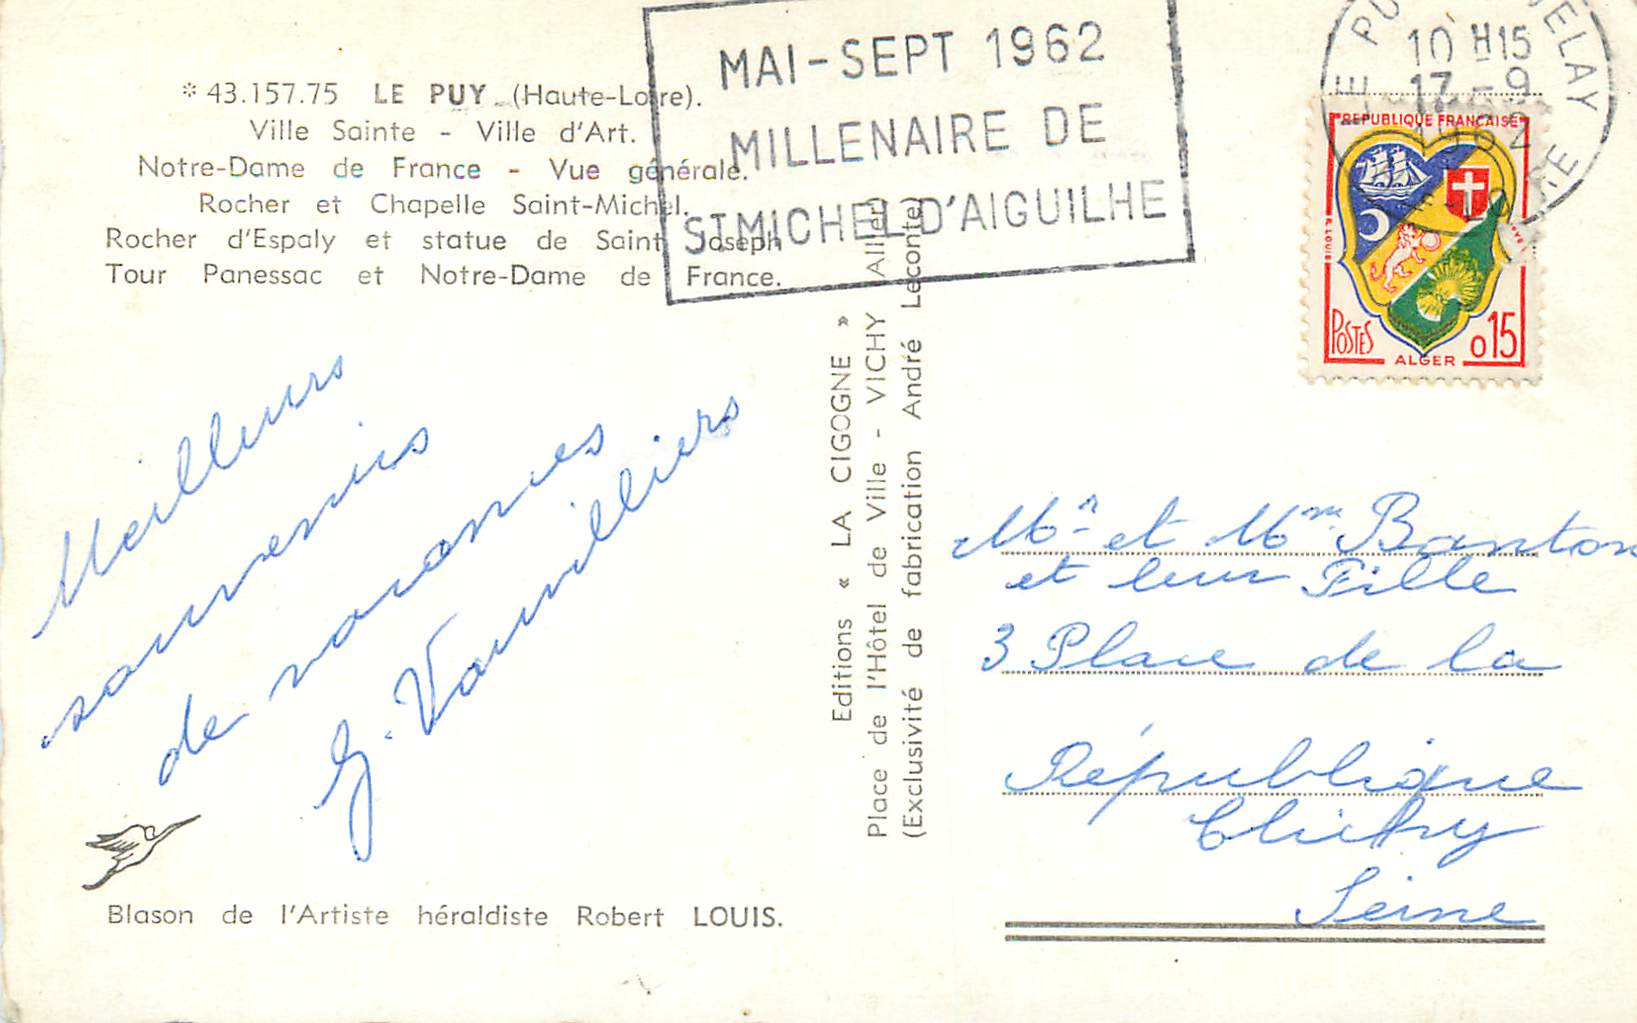 * 43.157.75 LE PUY (Haute-Loire).
Ville Sainte - Ville d'Art.
Notre-Dame de France - Vue générale.
Rocher et Chapelle Saint-Michel.
Rocher d'Espaly et statue de Saint Joseph
Tour Panessac et Notre-Dame de France.
MAI-SEPT 1962
MILLENAIRE DE
ST MICHEL D'AIGUILHE
10 H15
17 - 9
REPUBLIQUE FRANÇAISE
POSTES
ALGER
0,15
Meilleurs
souvenirs
de vacances
G. Vauvilliers
Editions « LA CIGOGNE »
Place de l'Hôtel de Ville - VICHY (Allier)
(Exclusivité de fabrication André Leconte)
Mr et Mme Banton
et leur Fille
3 Place de la
République
Clichy
Seine
Blason de l'Artiste héraldiste Robert LOUIS.